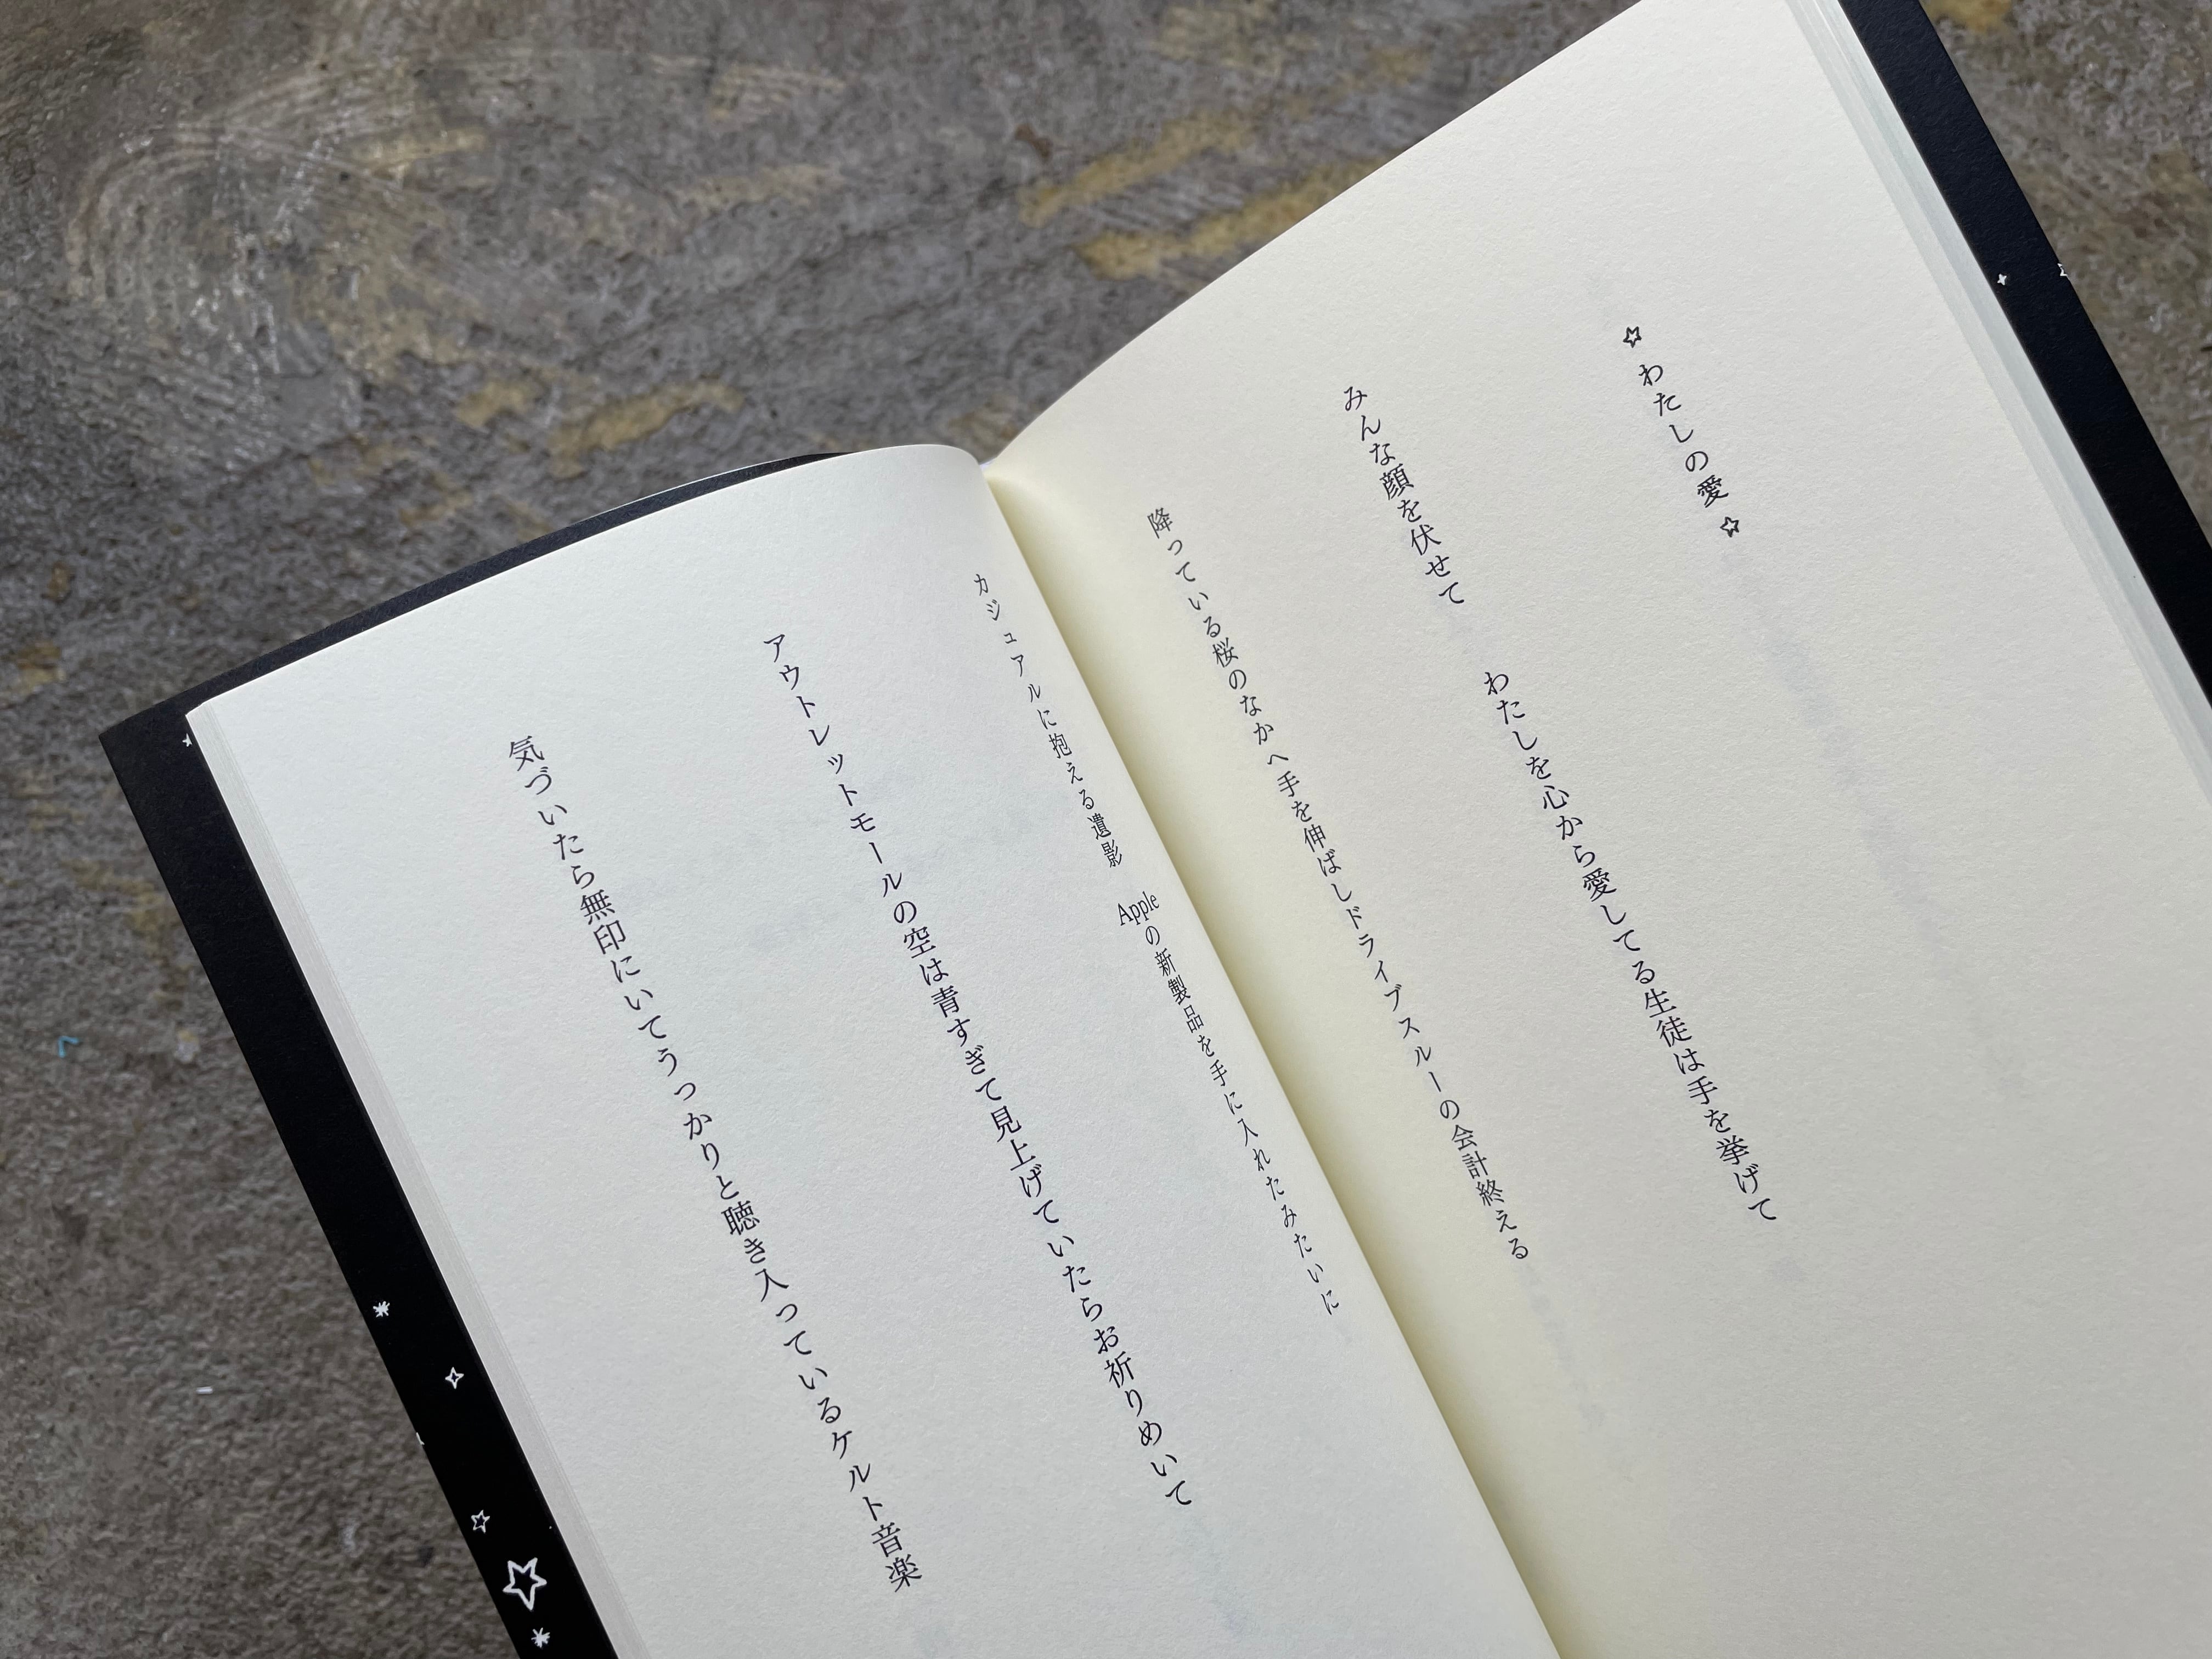 ☆わたしの愛☆
みんな顔を伏せて　わたしを心から愛してる生徒は手を挙げて
降っている桜のなかへ手を伸ばしドライブスルーの会計終える
カジュアルに抱える遺影　Appleの新製品を手に入れたみたいに
アウトレットモールの空は青すぎて見上げていたらお祈りめいて
気づいたら無印にいてうっかりと聴き入っているケルト音楽